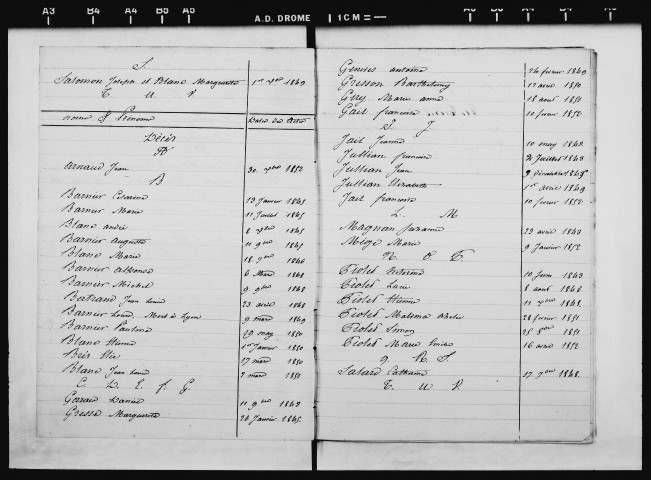 A3 B4 A4 B5 A5 A.D. DROME 1 CM =
S.
Salomon Joseph et Blanc Marguerite 1er 7bre 1849
T U V
Noms & Prénoms Dates des Actes
Décès
A
Arnaud Jean 30 1852
B
Barnier 13 Janvier 1845
Barnier Marie 11 Juillet 1845
Blanc André 8 1845
Barnier Auguste 11 9bre 1845
Blanc Marie 18 1846
Barnier Alphonse 6 Mars 1848
Barnier Michel 9 9bre 1848
Bertrand Jean Louis 23 avril 1848
Barnier Louis, Mort à Lyon 9 mars 1849
Barnier Pauline 29 may 1850
Blanc Etienne 1er Janvier 1850
Brès 17 mars 1850
Blanc Jean Louis 7 mars 1851
C. D. E. F. G.
Daniel 11 9bre 1843
Gresse Marguerite 26 Janvier 1845
Antoine 26 février 1849
Gresson Barthélemy 12 avril 1850
Marie Anne 18 août 1851
Gait françoise 10 février 1852
I J
Jait Jeanne 10 may 1843
Jullian françois Juillet 1843
Jullian Jean 9
Jullian Elisabeth 1er avril 1849
Jait françoise 10 février 1852
L. M
Magnan Suzanne 23 avril 1843
Marie 9 Janvier 1852
N. O. P.
Piolet 10 Juin 1843
Piolet Lucie 8 août 1846
Piolet Etienne 11 1848
Piolet 28 février 1851
Piolet Simon 25 8bre 1851
Piolet Marie Louise 16 avril 1852
Q. R. S.
Salard Catherine 17 7bre 1848
T. U V.